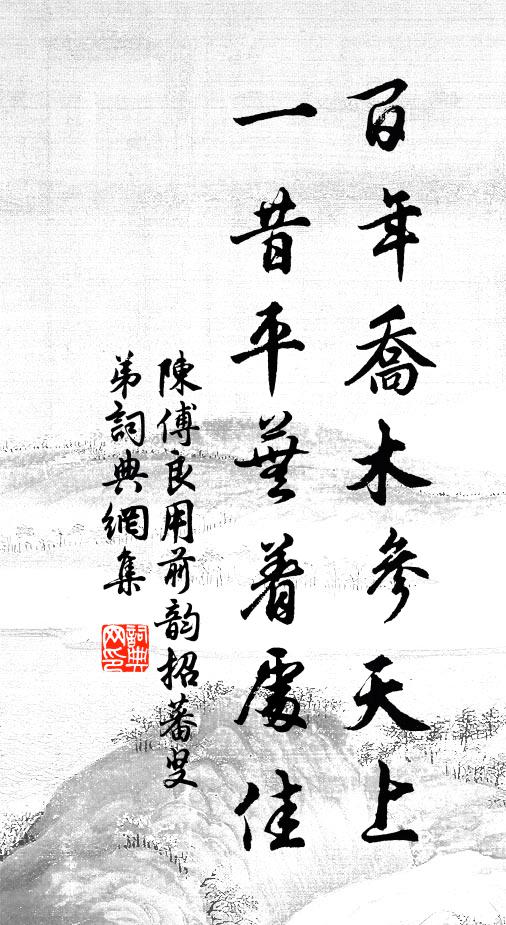 百年喬木參天上
一昔平蕪着處佳
陳傅良用前韵招蕃叟
弟詞典網集
詞典网印